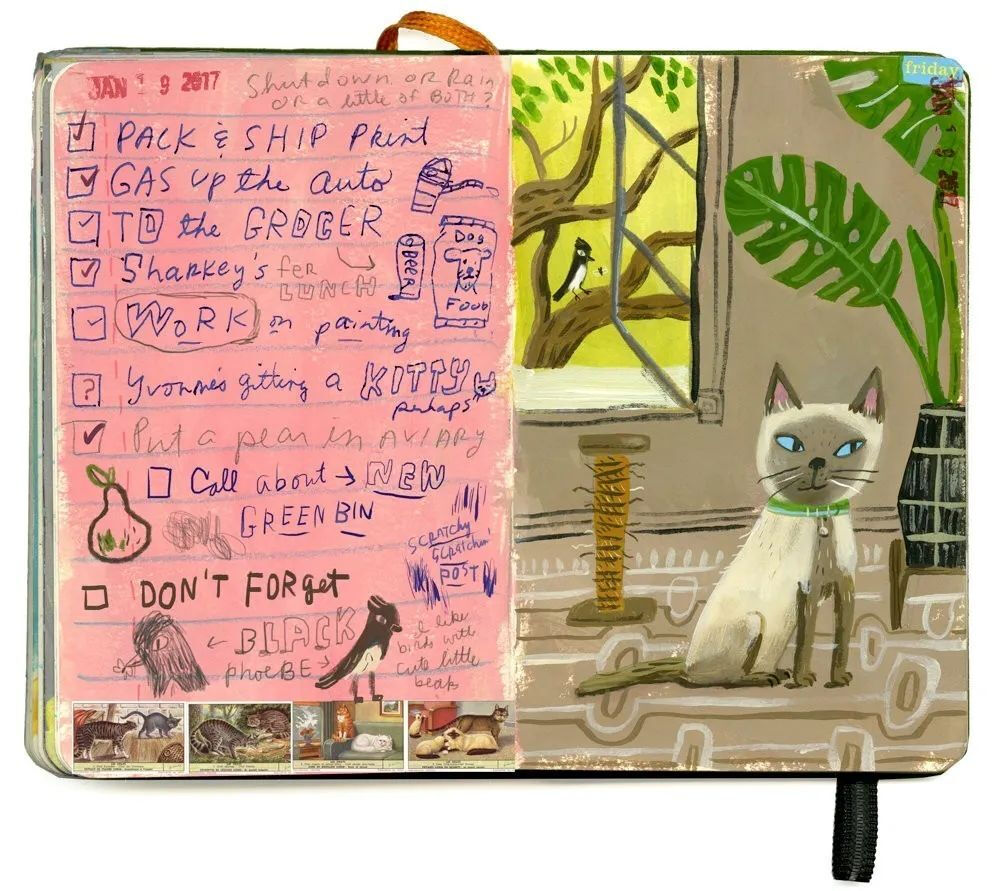 JAN 19 2017
Shutdown or Rain
OR a little of BOTH?
PACK & SHIP Print
GAS up the auto
TO the GROCER
BEER
Dog
Food
Sharkey's fer
LUNCH
WORK on painting
Yvonne's gitting a KITTY
perhaps
Put a pear in AVIARY
Call about → NEW
GREEN BIN
SCRATCHY
SCRATCHIN'
POST
DON'T FORget
← BLACK
phoeBE
I like
birds with
cute little
beaks
friday
JAN 19 2017